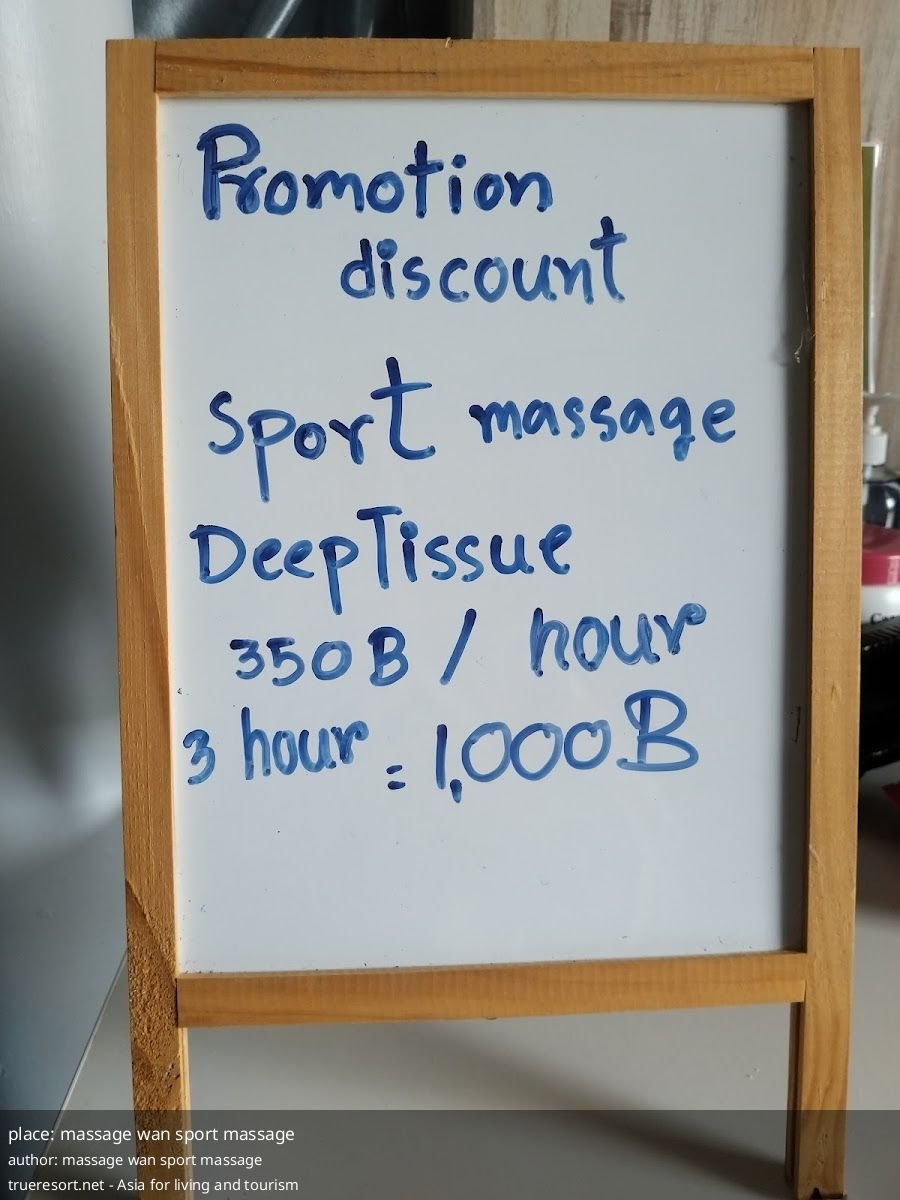 Promotion
discount
Sport massage
DeepTissue
350B / hour
3 hour = 1,000B
place: massage wan sport massage
author: massage wan sport massage
trueresort.net - Asia for living and tourism